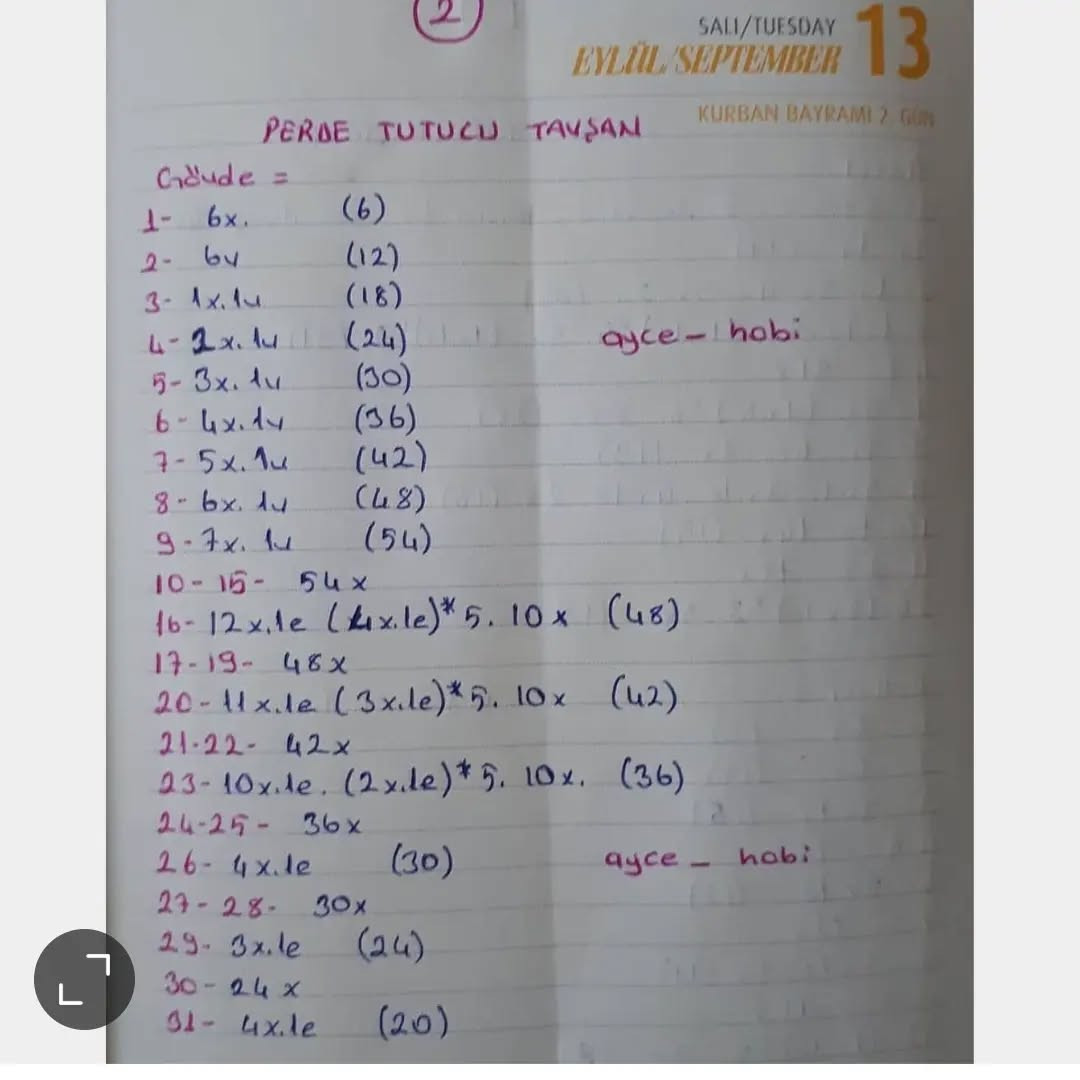 2
SALI/TUESDAY 13
EYLÜL/SEPTEMBER
KURBAN BAYRAMI 2. GÜN
PERDE TUTUCU TAVŞAN
Gövde =
1- 6x. (6)
2- 6v (12)
3- 1x.1v (18)
4- 2x.1v (24)
ayce - hobi
5- 3x.1v (30)
6- 4x.1v (36)
7- 5x.1v (42)
8- 6x.1v (48)
9- 7x.1v (54)
10-15- 54x
16- 12x.1e (4x.1e)*5. 10x (48)
17-19- 48x
20- 11x.1e (3x.1e)*5. 10x (42)
21-22- 42x
23- 10x.1e. (2x.1e)*5. 10x. (36)
24-25- 36x
26- 4x.1e (30)
ayce - hobi
27-28- 30x
29- 3x.1e (24)
30- 24x
31- 4x.1e (20)